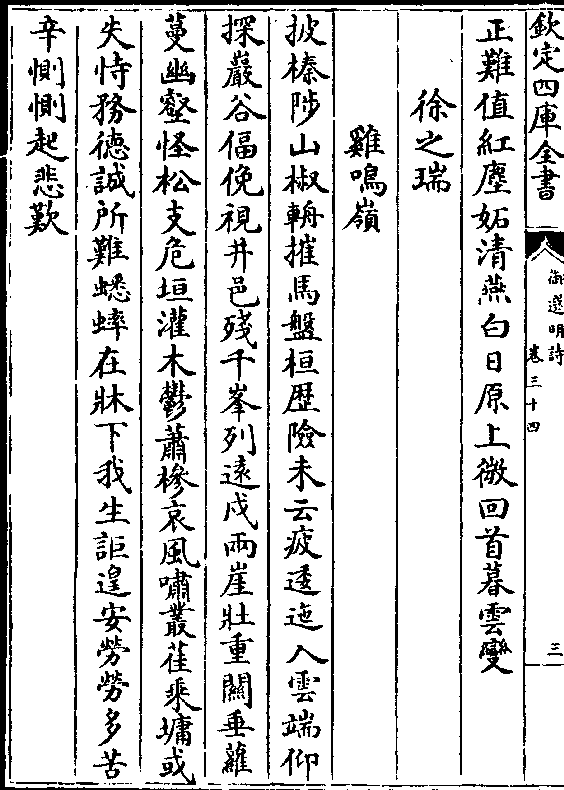 欽定四庫全書
御選明詩
卷三十四
三
正難值紅塵妬清燕白日原上微回首暮雲變
徐之瑞
雞鳴嶺
披榛陟山椒輈摧馬盤桓歴險未云疲逶迤入雲端仰
探巖谷偪俛視井邑殘千峯列遠戍兩崖壯重關垂蘿
蔓幽壑怪松支危垣灌木鬱蕭椮哀風嘯叢萑乘墉或
失恃務徳誠所難蟋蟀在牀下我生詎遑安勞勞多苦
辛惻惻起悲歎